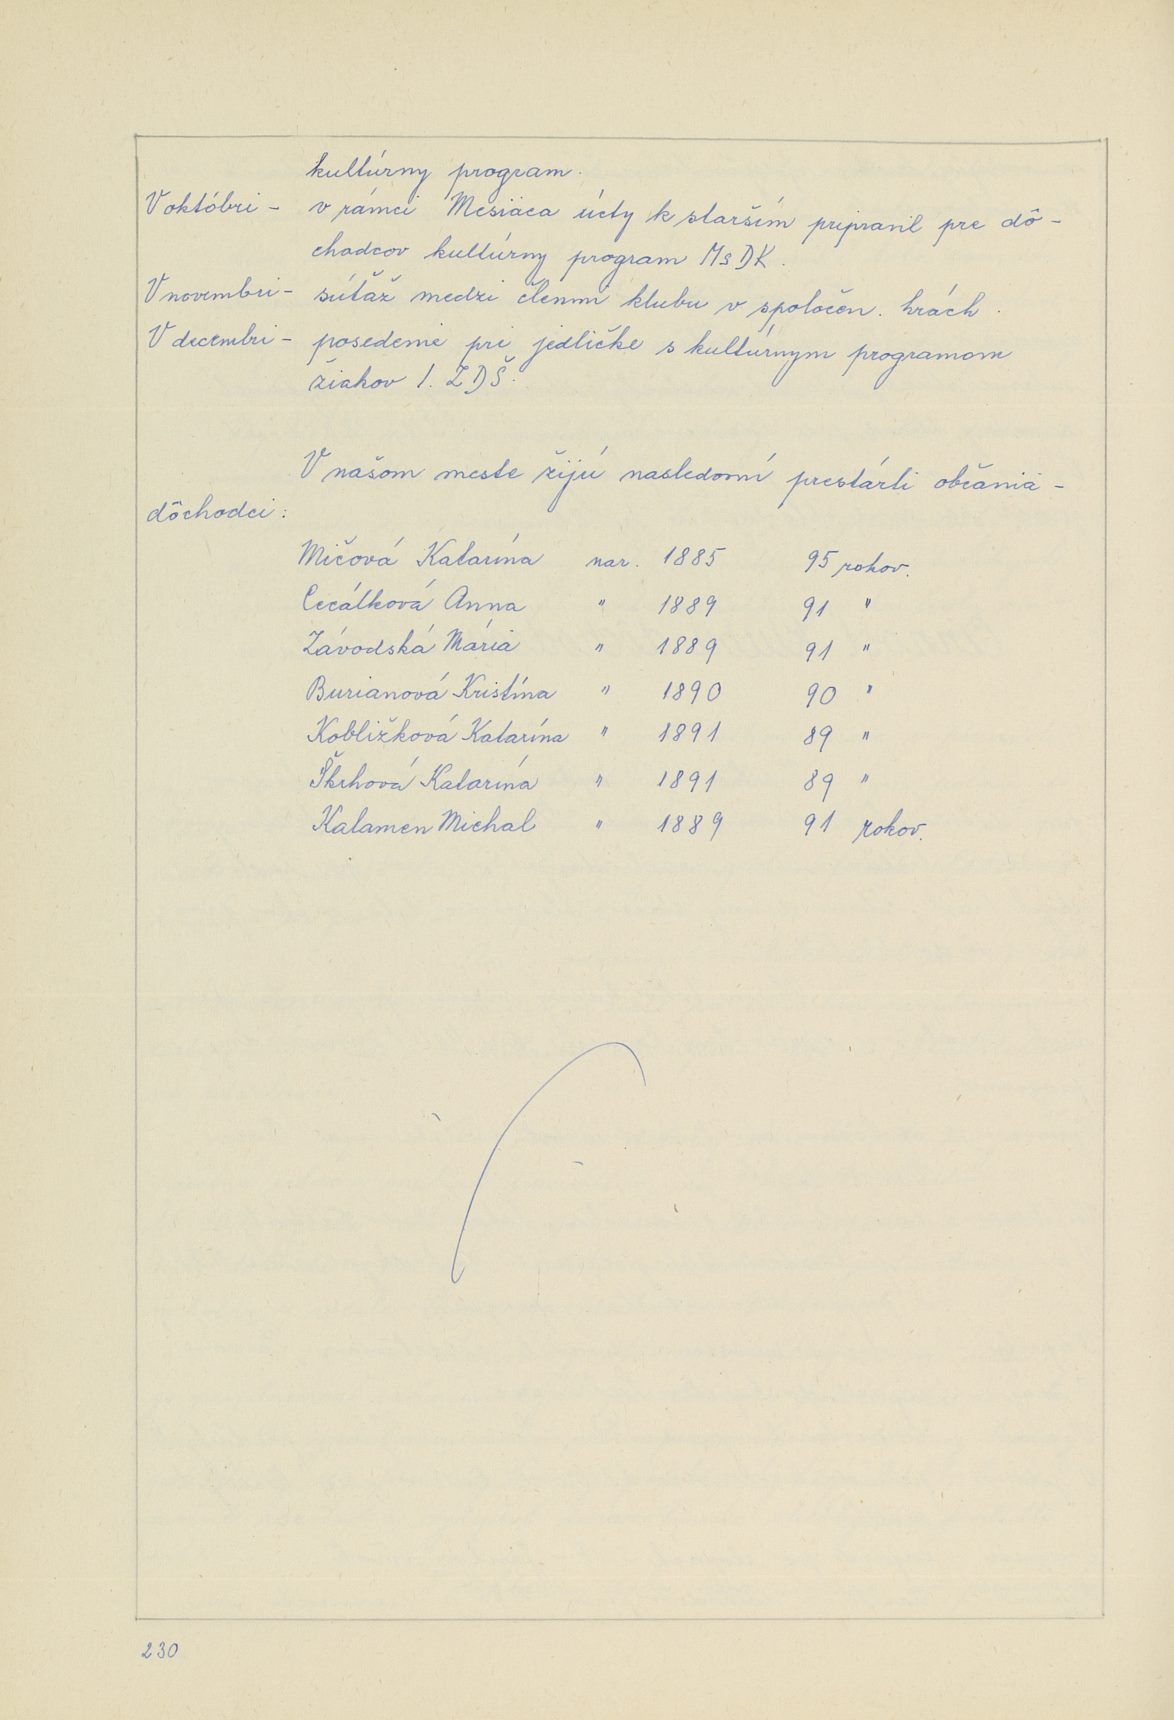 kultúrny program.
V októbri - v rámci Mesiaca úcty k starším pripravil pre dô-
chodcov kultúrny program MsDK.
V novembri - súťaž medzi členmi klubu v spoločen. hrách.
V decembri - posedenie pri jedličke s kultúrnym programom
žiakov 1. ZDŠ.
V našom meste žijú nasledovní prestárli občania -
dôchodci:
Mičová Katarína nar. 1885 95 rokov.
Cecálková Anna " 1889 91 "
Závodská Mária " 1889 91 "
Burianová Kristína " 1890 90 "
Kobližková Katarína " 1891 89 "
Škrhová Katarína " 1891 89 "
Kalamen Michal " 1889 91 rokov.
230